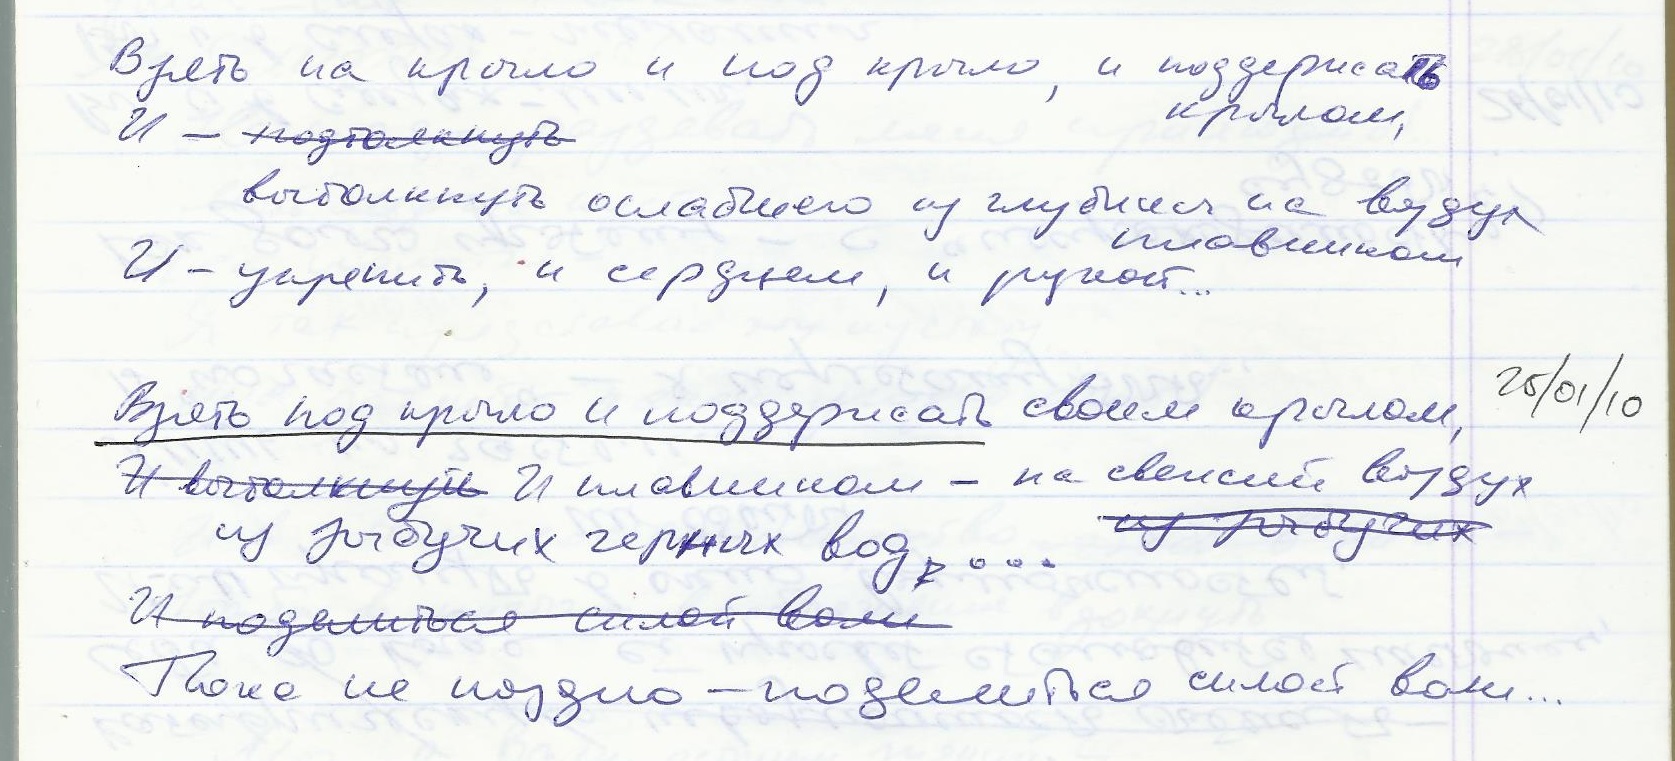 Взять на крыло и под крыло, и поддержать
крылом,
И – подтолкнуть
вытолкнуть ослабшего из глубины на воздух
плавником
И – укрепить, и сердцем, и рукой...
Взять под крыло и поддержать своим крылом,
25/01/10
И вытолкнуть И плавником – на свежий воздух
из зыбучих
из зыбучих черных вод, ...
И поделиться силой воли
Пока не поздно – поделиться силой воли...